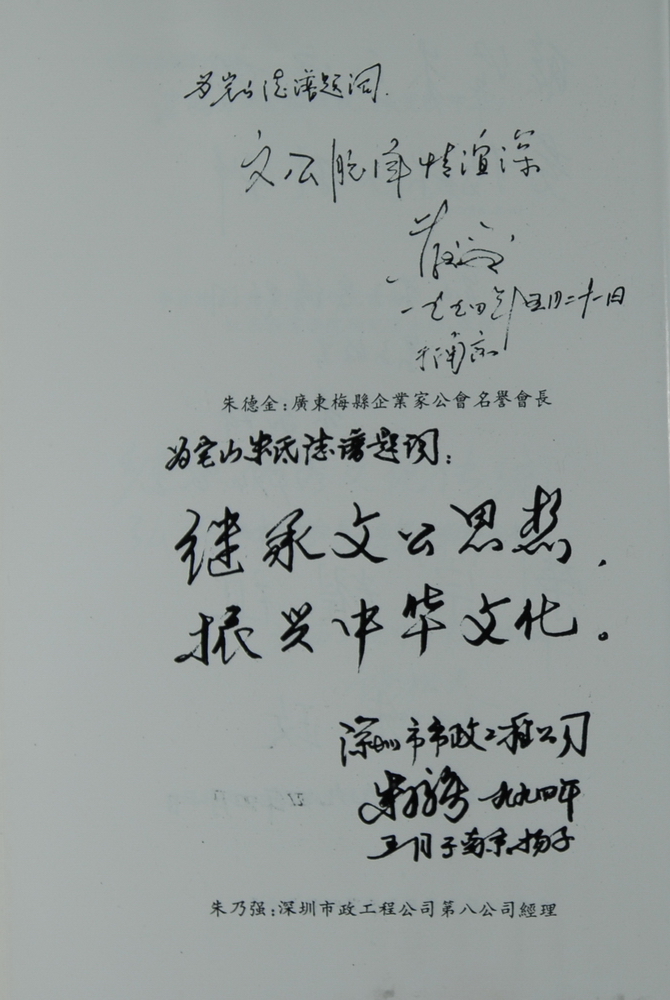 为宅山志谱题词
文公胞泽情谊深
一九九四年五月二十一日
于南京
朱德金:廣東梅縣企業家公會名譽會長
为宅山朱氏志谱题词:
继承文公思想,
振兴中华文化。
深圳市市政工程公司
一九九四年
五月于南京扬子
朱乃强:深圳市政工程公司第八公司經理